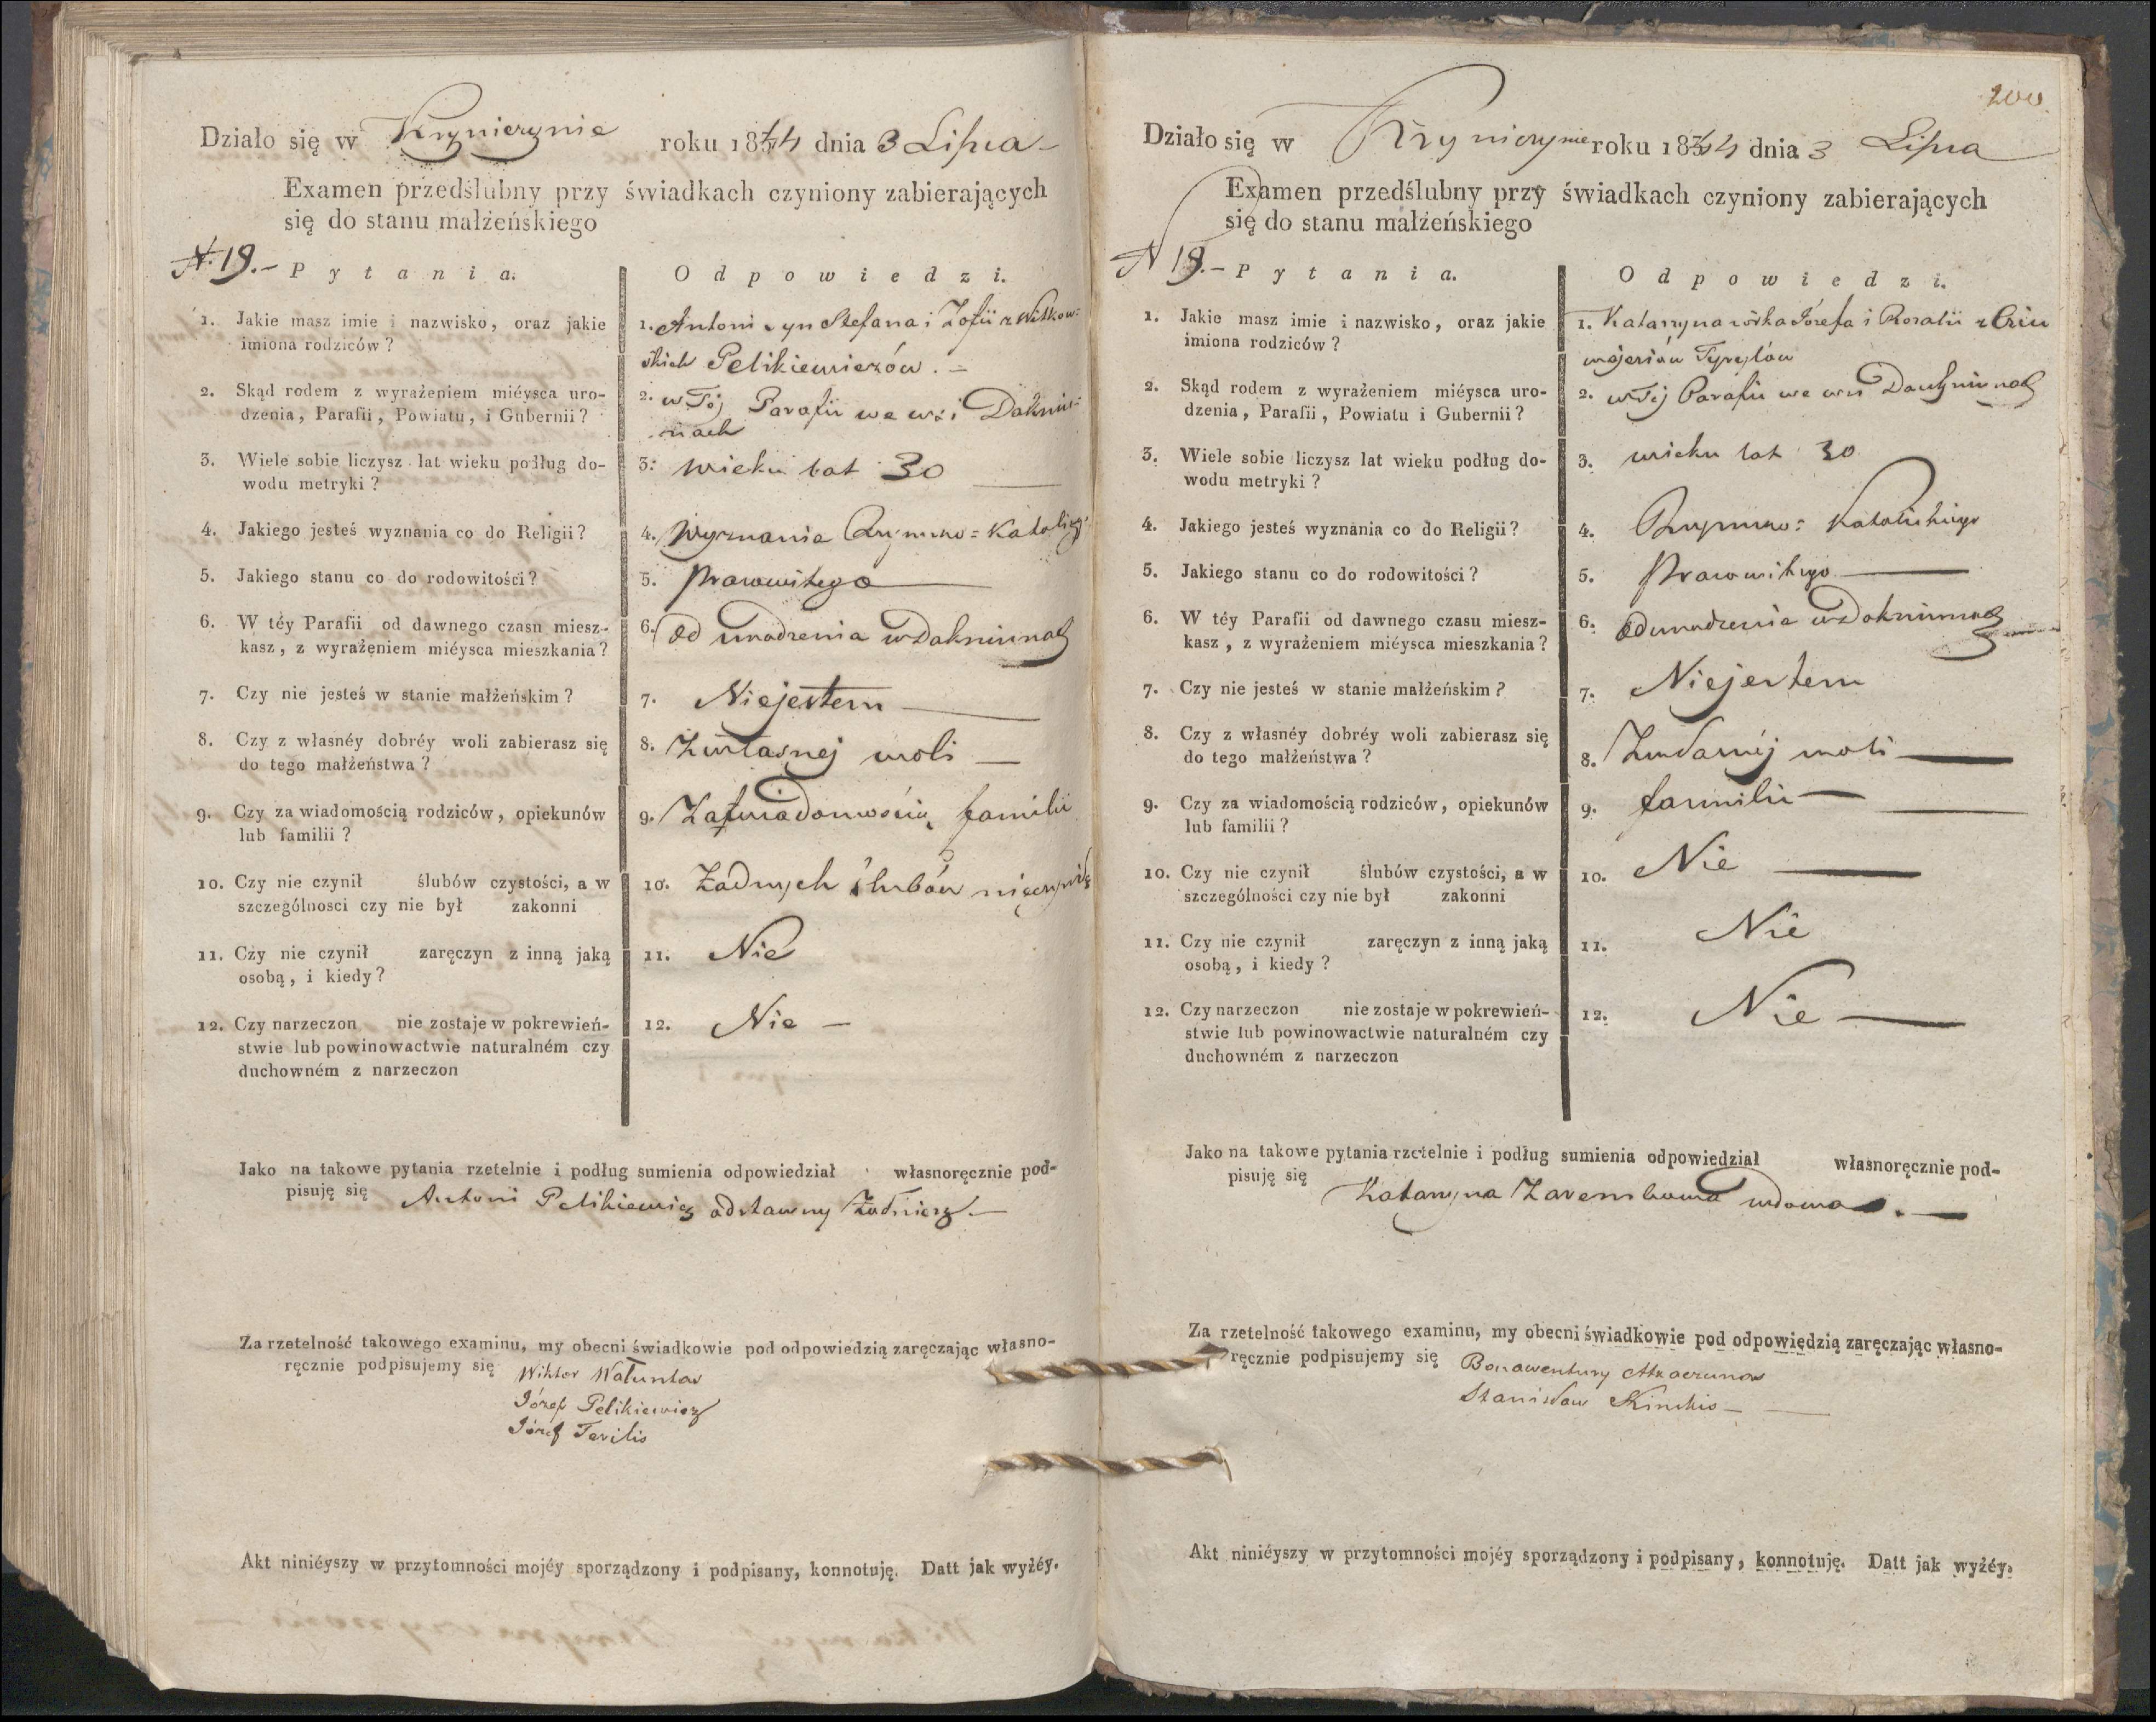 Działo się w Krynierynie roku 1844 dnia 3 Lipca
Examen przedślubny przy świadkach czyniony zabierających
się do stanu małżeńskiego
N. 19.
Pytania.
1. Jakie masz imie i nazwisko, oraz jakie
imiona rodziców?
2. Skąd rodem z wyrażeniem miéysca uro-
dzenia, Parafii, Powiatu, i Gubernii?
3. Wiele sobie liczysz lat wieku podług do-
wodu metryki?
4. Jakiego jesteś wyznania co do Religii?
5. Jakiego stanu co do rodowitości?
6. W téy Parafii od dawnego czasu miesz-
kasz, z wyrażeniem miéysca mieszkania?
7. Czy nie jesteś w stanie małżeńskim?
8. Czy z własnéy dobréy woli zabierasz się
do tego małżeństwa?
9. Czy za wiadomością rodziców, opiekunów
lub familii?
10. Czy nie czynił ślubów czystości, a w
szczególnosci czy nie był zakonni
11. Czy nie czynił zaręczyn z inną jaką
osobą, i kiedy?
12. Czy narzeczon nie zostaje w pokrewień-
stwie lub powinowactwie naturalném czy
duchowném z narzeczon
Odpowiedzi.
1. Antoni syn Stefana i Zofii z Witkow-
skich Pelikiewiczów.
2. w Téj Parafii we wsi Dakniu-
nach
3. wieku lat 30
4. Wyznania Rzymsko=Katolicz.
5. Prawowitego
6. Od urodzenia w Dakniunach
7. Niejestem
8. Zwłasnej woli
9. Zawiadomością familii
10. Żadnych ślubów nieczynił
11. Nie
12. Nie
Jako na takowe pytania rzetelnie i podług sumienia odpowiedział własnoręcznie pod-
pisuję się Antoni Pelikiewicz odstawny Żołnierz.
Za rzetelność takowego examinu, my obecni świadkowie pod odpowiedzią zaręczając własno-
ręcznie podpisujemy się Wiktor Watuntow
Józef Pelikiewicz
Józef Terilis
Akt niniéyszy w przytomności mojéy sporządzony i podpisany, konnotuję. Datt jak wyżéy.
200
Działo się w Krynierynie roku 1844 dnia 3 Lipca
Examen przedślubny przy świadkach czyniony zabierających
się do stanu małżeńskiego
N 19.
Pytania.
1. Jakie masz imie i nazwisko, oraz jakie
imiona rodziców?
2. Skąd rodem z wyrażeniem miéysca uro-
dzenia, Parafii, Powiatu, i Gubernii?
3. Wiele sobie liczysz lat wieku podług do-
wodu metryki?
4. Jakiego jesteś wyznania co do Religii?
5. Jakiego stanu co do rodowitości?
6. W téy Parafii od dawnego czasu miesz-
kasz, z wyrażeniem miéysca mieszkania?
7. Czy nie jesteś w stanie małżeńskim?
8. Czy z własnéy dobréy woli zabierasz się
do tego małżeństwa?
9. Czy za wiadomością rodziców, opiekunów
lub familii?
10. Czy nie czynił ślubów czystości, a w
szczególności czy nie był zakonni
11. Czy nie czynił zaręczyn z inną jaką
osobą, i kiedy?
12. Czy narzeczon nie zostaje w pokrewień-
stwie lub powinowactwie naturalném czy
duchowném z narzeczon
Odpowiedzi.
1. Katarzyna córka Józefa i Rozalii z
2. w Tej Parafii we wsi Daukniunach
3. wieku lat 30
4. Rzymsko=Katolickiego
5. Prawowitego
6. Od urodzenia w Dokniunach
7. Niejestem
8. Zwłasnéj woli
9. familii
10. Nie
11. Nie
12. Nie
Jako na takowe pytania rzetelnie i podług sumienia odpowiedział własnoręcznie pod-
pisuję się Katarzyna Zarembowa wdowa.
Za rzetelność takowego examinu, my obecni świadkowie pod odpowiedzią zaręczając własno-
ręcznie podpisujemy się Bonawentury
Stanisław Kinskis
Akt niniéyszy w przytomności mojéy sporządzony i podpisany, konnotuję. Datt jak wyżéy.